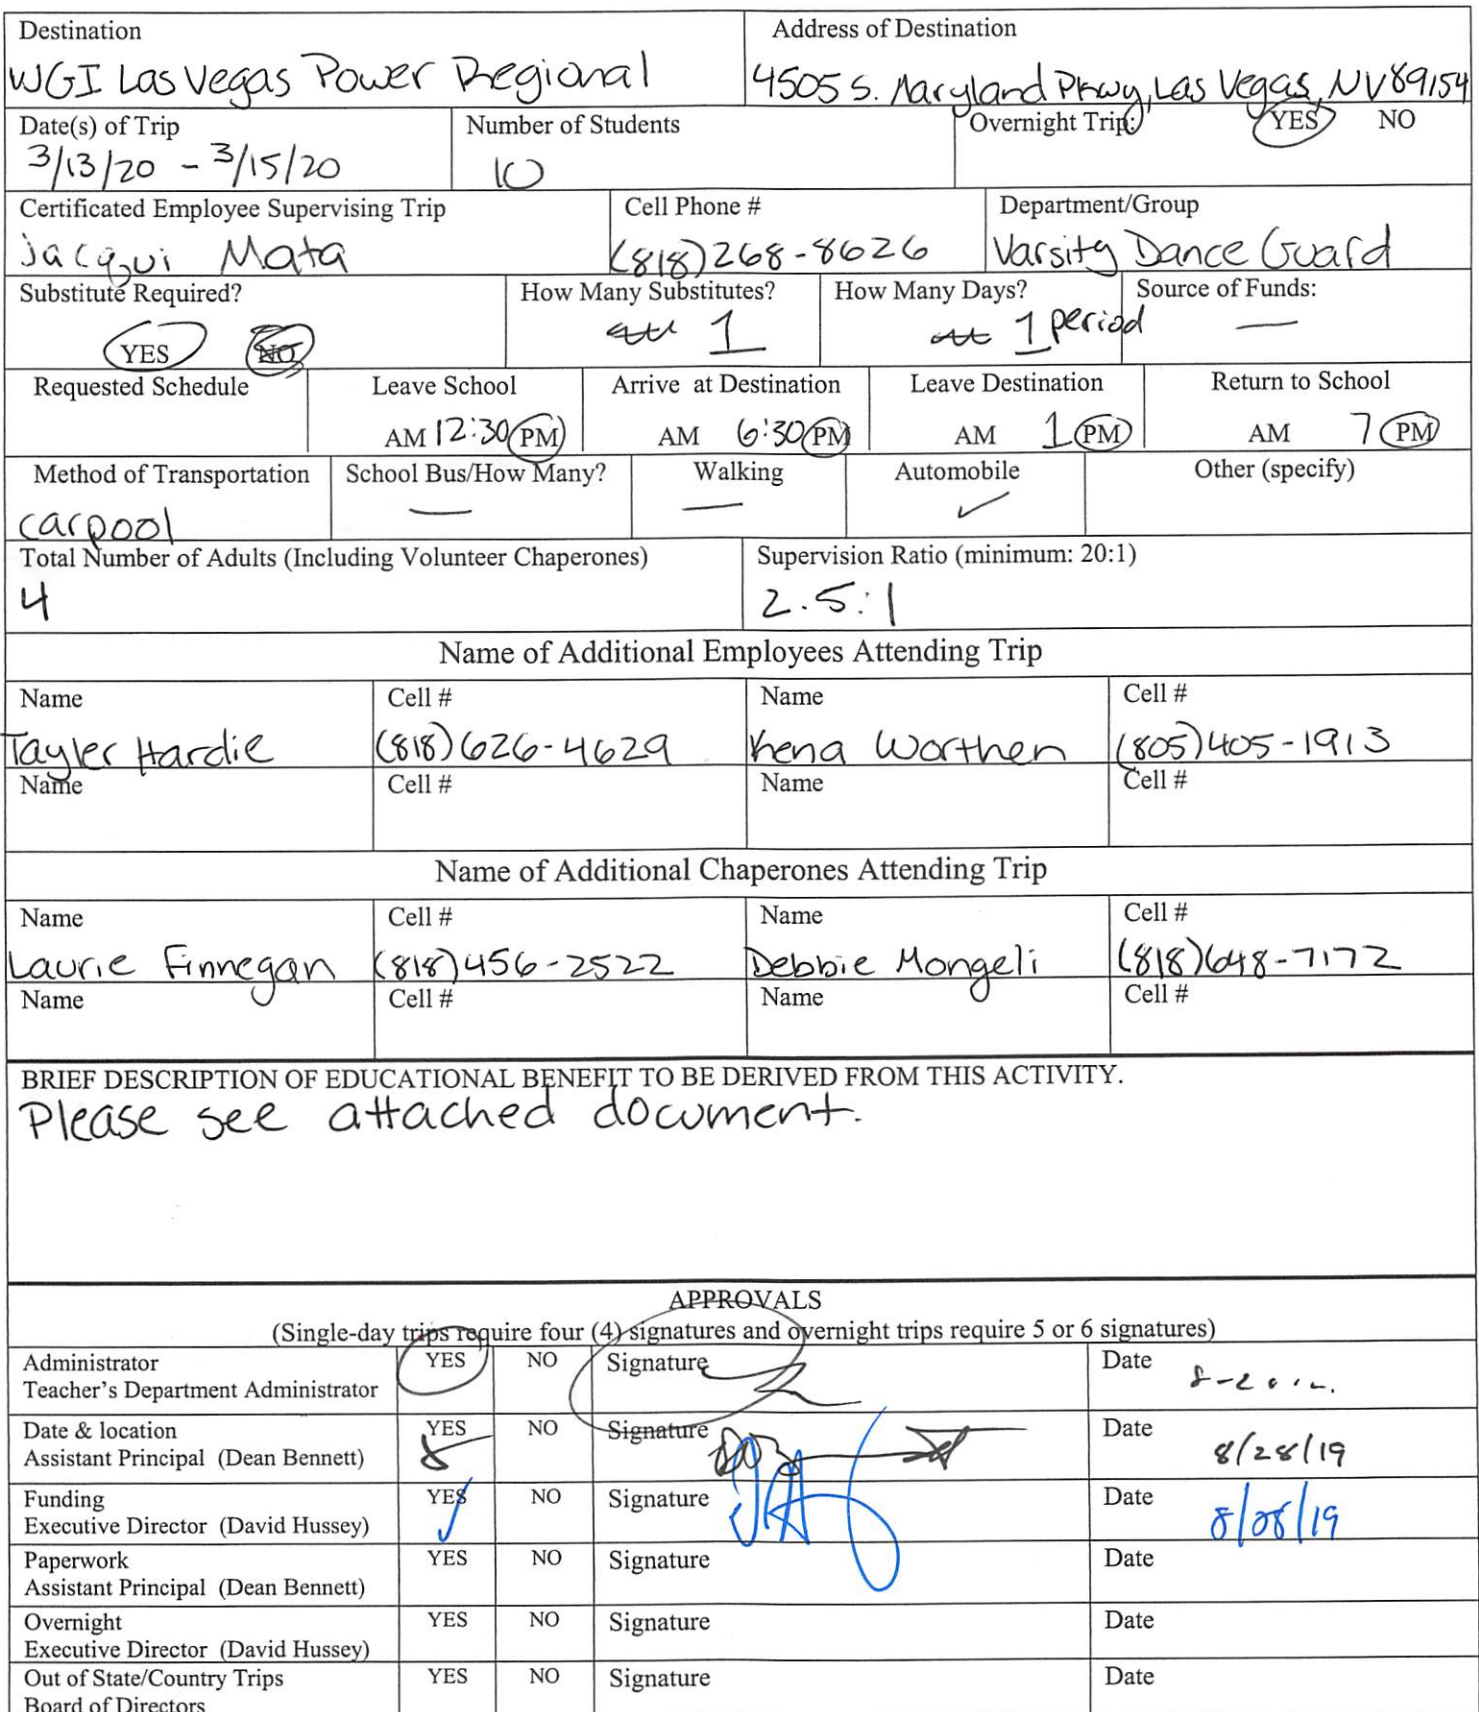 Destination
Address of Destination
WGI Las Vegas Power Regional
4505 S. Maryland Pkwy, Las Vegas, NV 89154
Date(s) of Trip
Number of Students
Overnight Trip: YES NO
3/13/20 - 3/15/20
10
Certificated Employee Supervising Trip
Cell Phone #
Department/Group
Jacqui Mata
(818)268-8626
Varsity Dance Guard
Substitute Required?
How Many Substitutes?
How Many Days?
Source of Funds:
YES NO
1
1 period
—
Requested Schedule
Leave School
Arrive at Destination
Leave Destination
Return to School
AM 12:30 PM
AM 6:30 PM
AM 1 PM
AM 7 PM
Method of Transportation
School Bus/How Many?
Walking
Automobile
Other (specify)
carpool
—
—
✓
Total Number of Adults (Including Volunteer Chaperones)
Supervision Ratio (minimum: 20:1)
4
2.5:1
Name of Additional Employees Attending Trip
Name
Cell #
Name
Cell #
Tayler Hardie
(818)626-4629
Kena Worthen
(805)405-1913
Name
Cell #
Name
Cell #
Name of Additional Chaperones Attending Trip
Name
Cell #
Name
Cell #
Laurie Finnegan
(818)456-2522
Debbie Mongeli
(818)648-7172
Name
Cell #
Name
Cell #
BRIEF DESCRIPTION OF EDUCATIONAL BENEFIT TO BE DERIVED FROM THIS ACTIVITY.
Please see attached document.
APPROVALS
(Single-day trips require four (4) signatures and overnight trips require 5 or 6 signatures)
Administrator
Teacher's Department Administrator
YES
NO
Signature
Date
Date & location
Assistant Principal (Dean Bennett)
YES
NO
Signature
Date
8/28/19
Funding
Executive Director (David Hussey)
YES
NO
Signature
Date
8/28/19
Paperwork
Assistant Principal (Dean Bennett)
YES
NO
Signature
Date
Overnight
Executive Director (David Hussey)
YES
NO
Signature
Date
Out of State/Country Trips
Board of Directors
YES
NO
Signature
Date